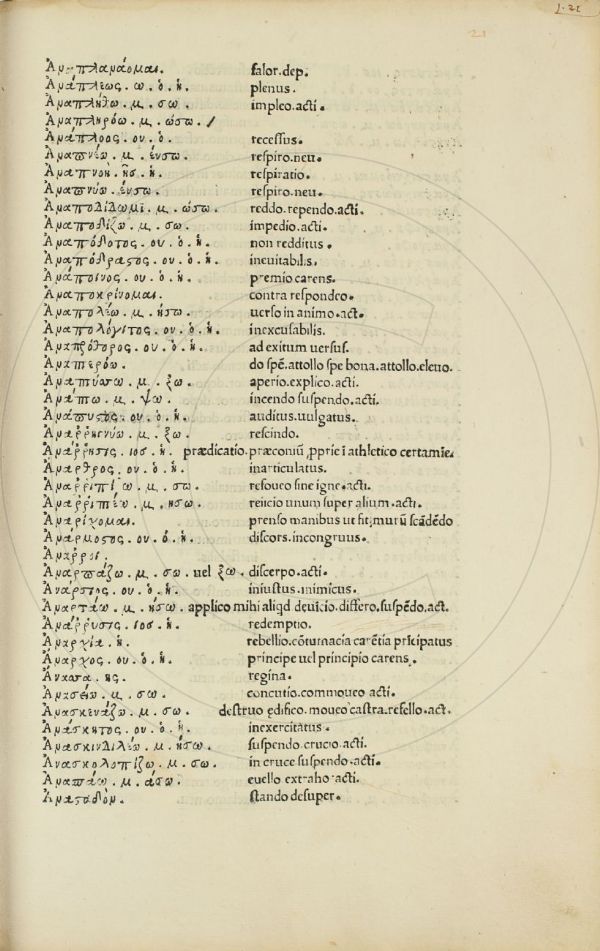 j. 21
21
Ἀναπλανάομαι. falor.dep.
Ἀνάπλεως. ω. ὁ. ἡ. plenus.
Ἀναπλήθω. μ. σω. impleo.acti.
Ἀναπληρόω. μ. ώσω. /
Ἀνάπλοος. ου. ὁ. recessus.
Ἀναπνέω. μ. έυσω. respiro.neu.
Ἀναπνοὴ. ῆσ. ἡ. respiratio.
Ἀναπνύω. έυσω. respiro.neu.
Ἀναποδίδωμι. μ. ώσω. reddo.rependo.acti.
Ἀναποδίζω. μ. σω. impedio.acti.
Ἀναπόδοτος. ου. ὁ. ἡ. non redditus.
Ἀναπόδραστος. ου. ὁ. ἡ. ineuitabilis.
Ἀναποινος. ου. ὁ. ἡ. premio carens.
Ἀναποκρίνομαι. contra respondeo.
Ἀναπολέω. μ. ήσω. uerso in animo.act.
Ἀναπολόγιτος. ου. ὁ. ἡ. inexcusabilis.
Ἀναπρόθορος. ου. ὁ. ἡ. ad exitum uersus.
Ἀναπτερόω. do spē.attollo spe bona.attollo.eleuo.
Ἀναπτύσσω. μ. ξω. aperio.explico.acti.
Ἀνάπτω. μ. ψω. incendo suspendo.acti.
Ἀνάπυστος. ου. ὁ. ἡ. auditus.uulgatus.
Ἀναρρηγνύω. μ. ξω. rescindo.
Ἀνάῤῥησις. ιοσ. ἡ. prædicatio.præconiū.pprie ī athletico certamīe.
Ἄναρθρος. ου. ὁ. ἡ. inarticulatus.
Ἀναῤῥιπίζω. μ. σω. refoueo sine igne.acti.
Ἀναῤῥιπτέω. μ. ησω. reiicio unum super alium.acti.
Ἀναρίχομαι. prenso manibus ut fit; murū scādēdo
Ἀνάρμοσος. ου. ὁ. ἡ. discors.incongruus.
Ἀναρροι.
Ἀναρπάζω. μ. σω. uel ξω. discerpo.acti.
Ἀνάρσιος. ου. ὁ. ἡ. iniustus.inimicus.
Ἀναρτάω. μ. ήσω. applico mihi aliqd deuīcio.differo.suspēdo.act.
Ἀνάῤῥυσις. ιοσ. ἡ. redemptio.
Ἀναρχία. ἡ. rebellio.cōtumacia carētia prīcipatus
Ἄναρχος. ου. ὁ. ἡ. principe uel principio carens.
Ἄνασσα. ης. regina.
Ἀνασείω. μ. σω. concutio.commoueo acti.
Ἀνασκευάζω. μ. σω. destruo ędifico.moueo castra.refello.act.
Ἀνάσκητος. ου. ὁ. ἡ. inexercitatus.
Ἀνασκινδιλέω. μ. ήσω. suspendo.crucio.acti.
Ἀνασκολοπίζω. μ. σω. in cruce suspendo.acti.
Ἀνασπάω. μ. άσω. euello extraho acti.
Ἀναστοδὸν. stando desuper.